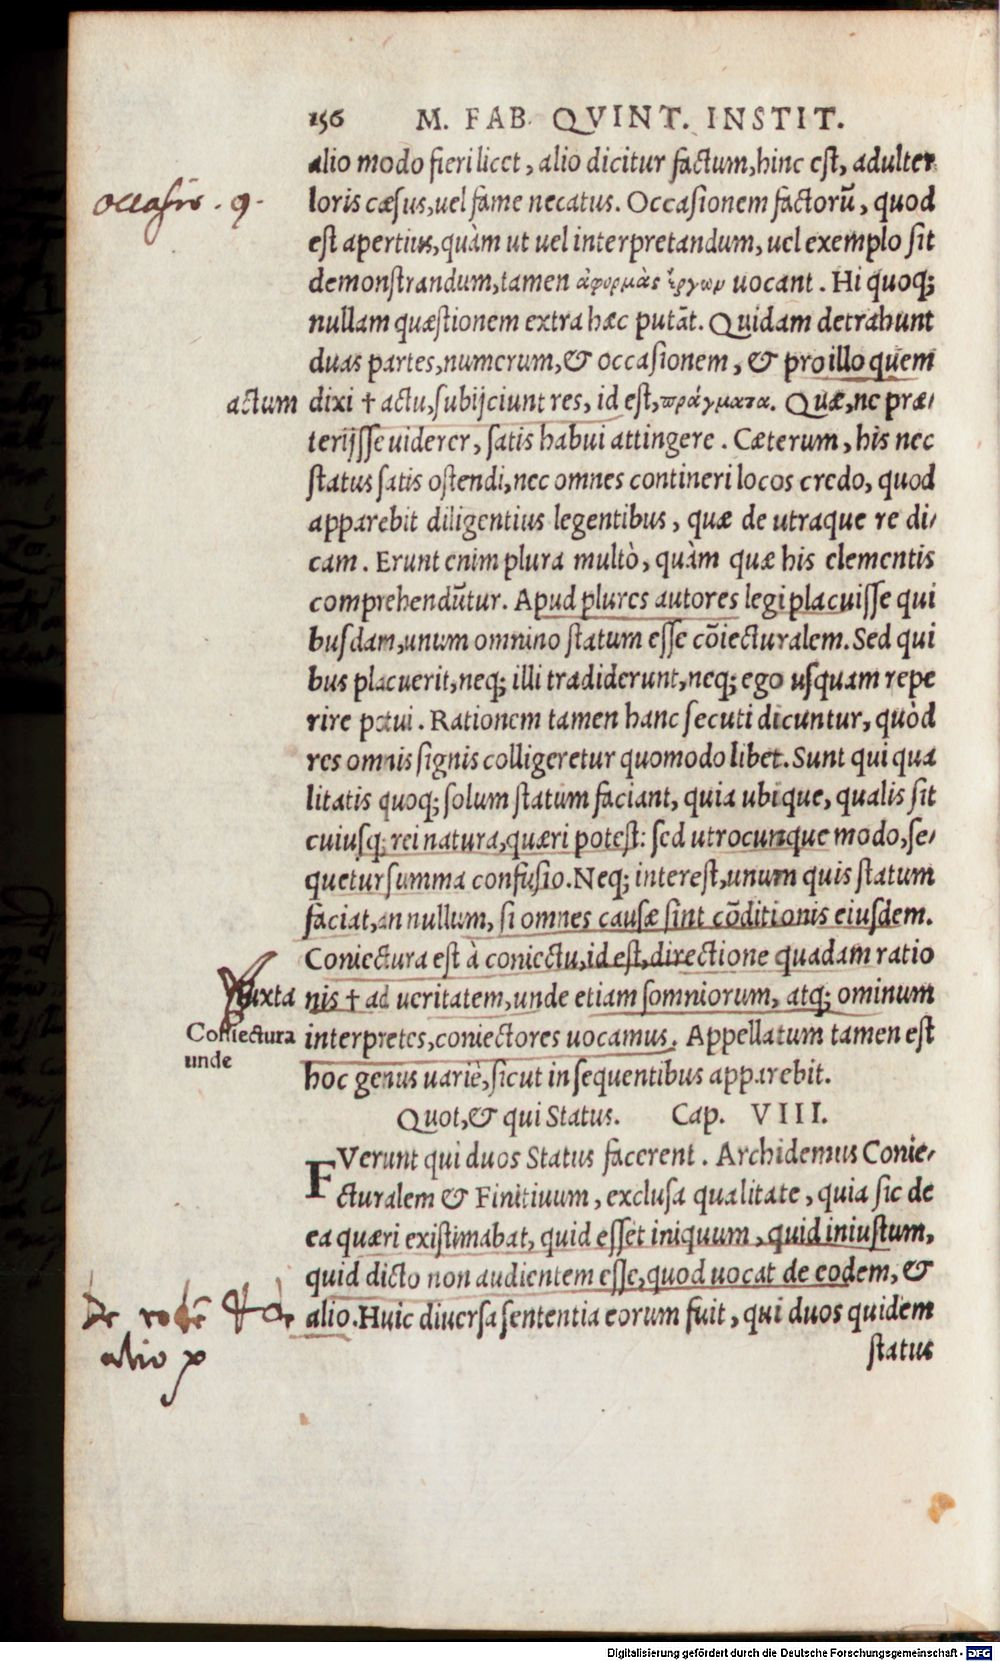 156 M. FAB. QVINT. INSTIT.
alio modo fieri licet, alio dicitur factum, hinc est, adulter
loris cæsus, uel fame necatus. Occasionem factorũ, quod
est apertius, quàm ut uel interpretandum, uel exemplo sit
demonstrandum, tamen ἀφορμὰς ἔργων uocant. Hi quoq;
nullam quæstionem extra hæc putãt. Quidam detrahunt
duas partes, numerum, & occasionem, & pro illo quem
actum dixi † actu, subijciunt res, id est, πράγματα. Quæ, ne præ/
terijsse uiderer, satis habui attingere. Cæterum, his nec
status satis ostendi, nec omnes contineri locos credo, quod
apparebit diligentius legentibus, quæ de utraque re di/
cam. Erunt enim plura multò, quàm quæ his elementis
comprehendũtur. Apud plures autores legi placuisse qui
busdam, unum omnino statum esse cõiecturalem. Sed qui
bus placuerit, neq; illi tradiderunt, neq; ego usquam repe
rire potui. Rationem tamen hanc secuti dicuntur, quòd
res omnis signis colligeretur quomodo libet. Sunt qui qua
litatis quoq; solum statum faciant, quia ubique, qualis sit
cuiusq; rei natura, quæri potest: sed utrocunque modo, se/
quetur summa confusio. Neq; interest, unum quis statum
faciat, an nullum, si omnes causæ sint cõditionis eiusdem.
Coniectura est à coniectu, id est, directione quadam ratio
iuxta nis † ad ueritatem, unde etiam somniorum, atq; ominum
Coniectura interpretes, coniectores uocamus. Appellatum tamen est
unde
hoc genus uariè, sicut in sequentibus apparebit.
Quot, & qui Status. Cap. VIII.
FVerunt qui duos Status facerent. Archidemus Conie/
cturalem & Finitiuum, exclusa qualitate, quia sic de
ea quæri existimabat, quid esset iniquum, quid iniustum,
quid dicto non audientem esse, quod uocat de eodem, &
De & de alio. Huic diuersa sententia eorum fuit, qui duos quidem
alio
status
Digitalisierung gefördert durch die Deutsche Forschungsgemeinschaft - DFG